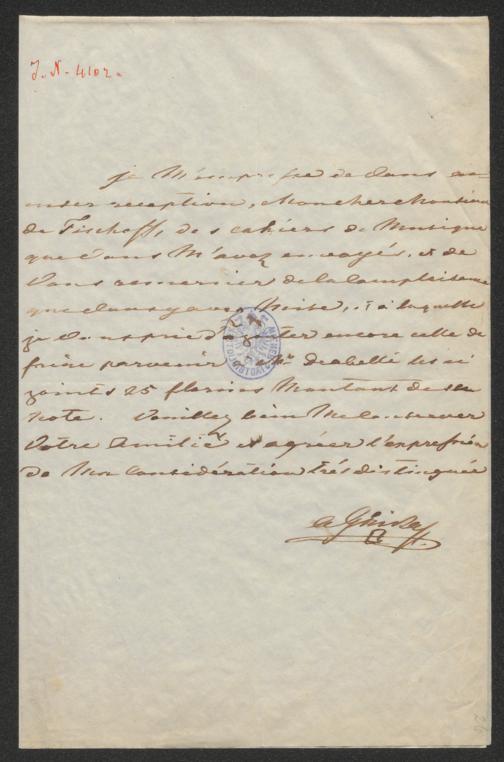 J. N. 4102.
je M'empresse de Vous an-
noncer reception, Mon cher Monsieur
de Fischoff, des cahiers de Musique
que Vous M'avez envoyés, et de
Vous remercier de la Complaisance
que Vous y avez Mise, et à laquelle
je Vous prie d' encore celle de
faire parvenir à Mr. Diabelli les ci
joints 25 florins Montant de sa
note. Veuillez bien Me Conserver
Votre Amitié et agréer l'expression
de Ma Considération très distinguée